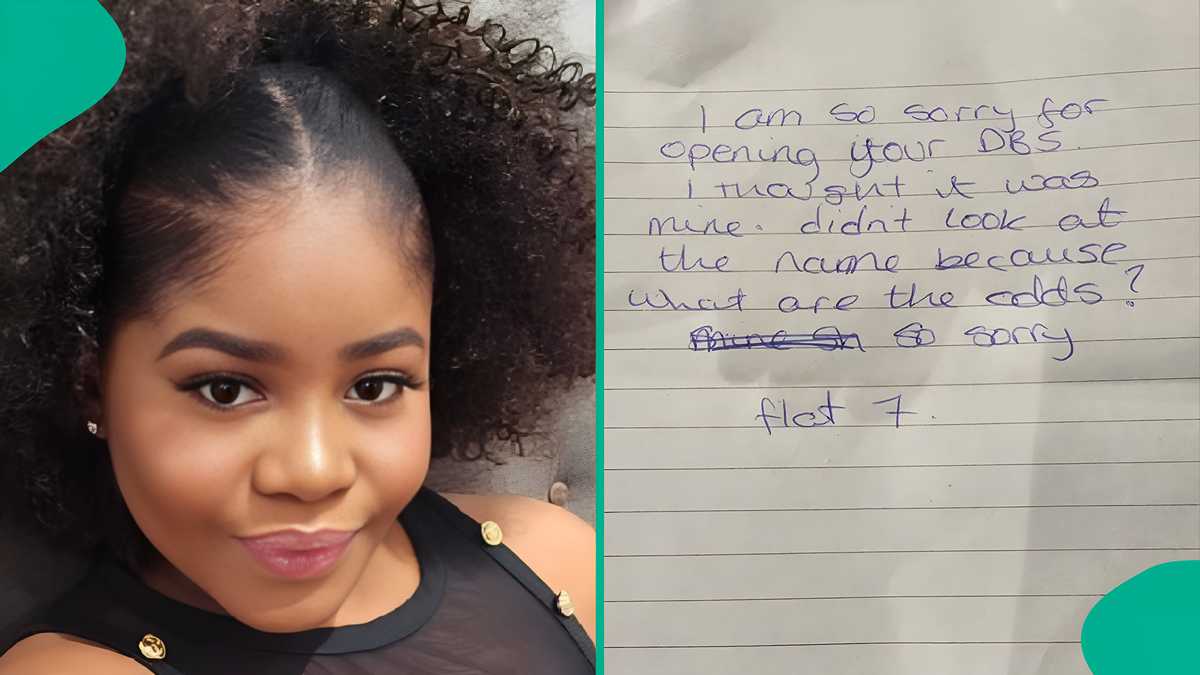 I am so sorry for
opening your DBS.
I thought it was
mine. didn't look at
the name because
what are the odds?
so sorry
flat 7.